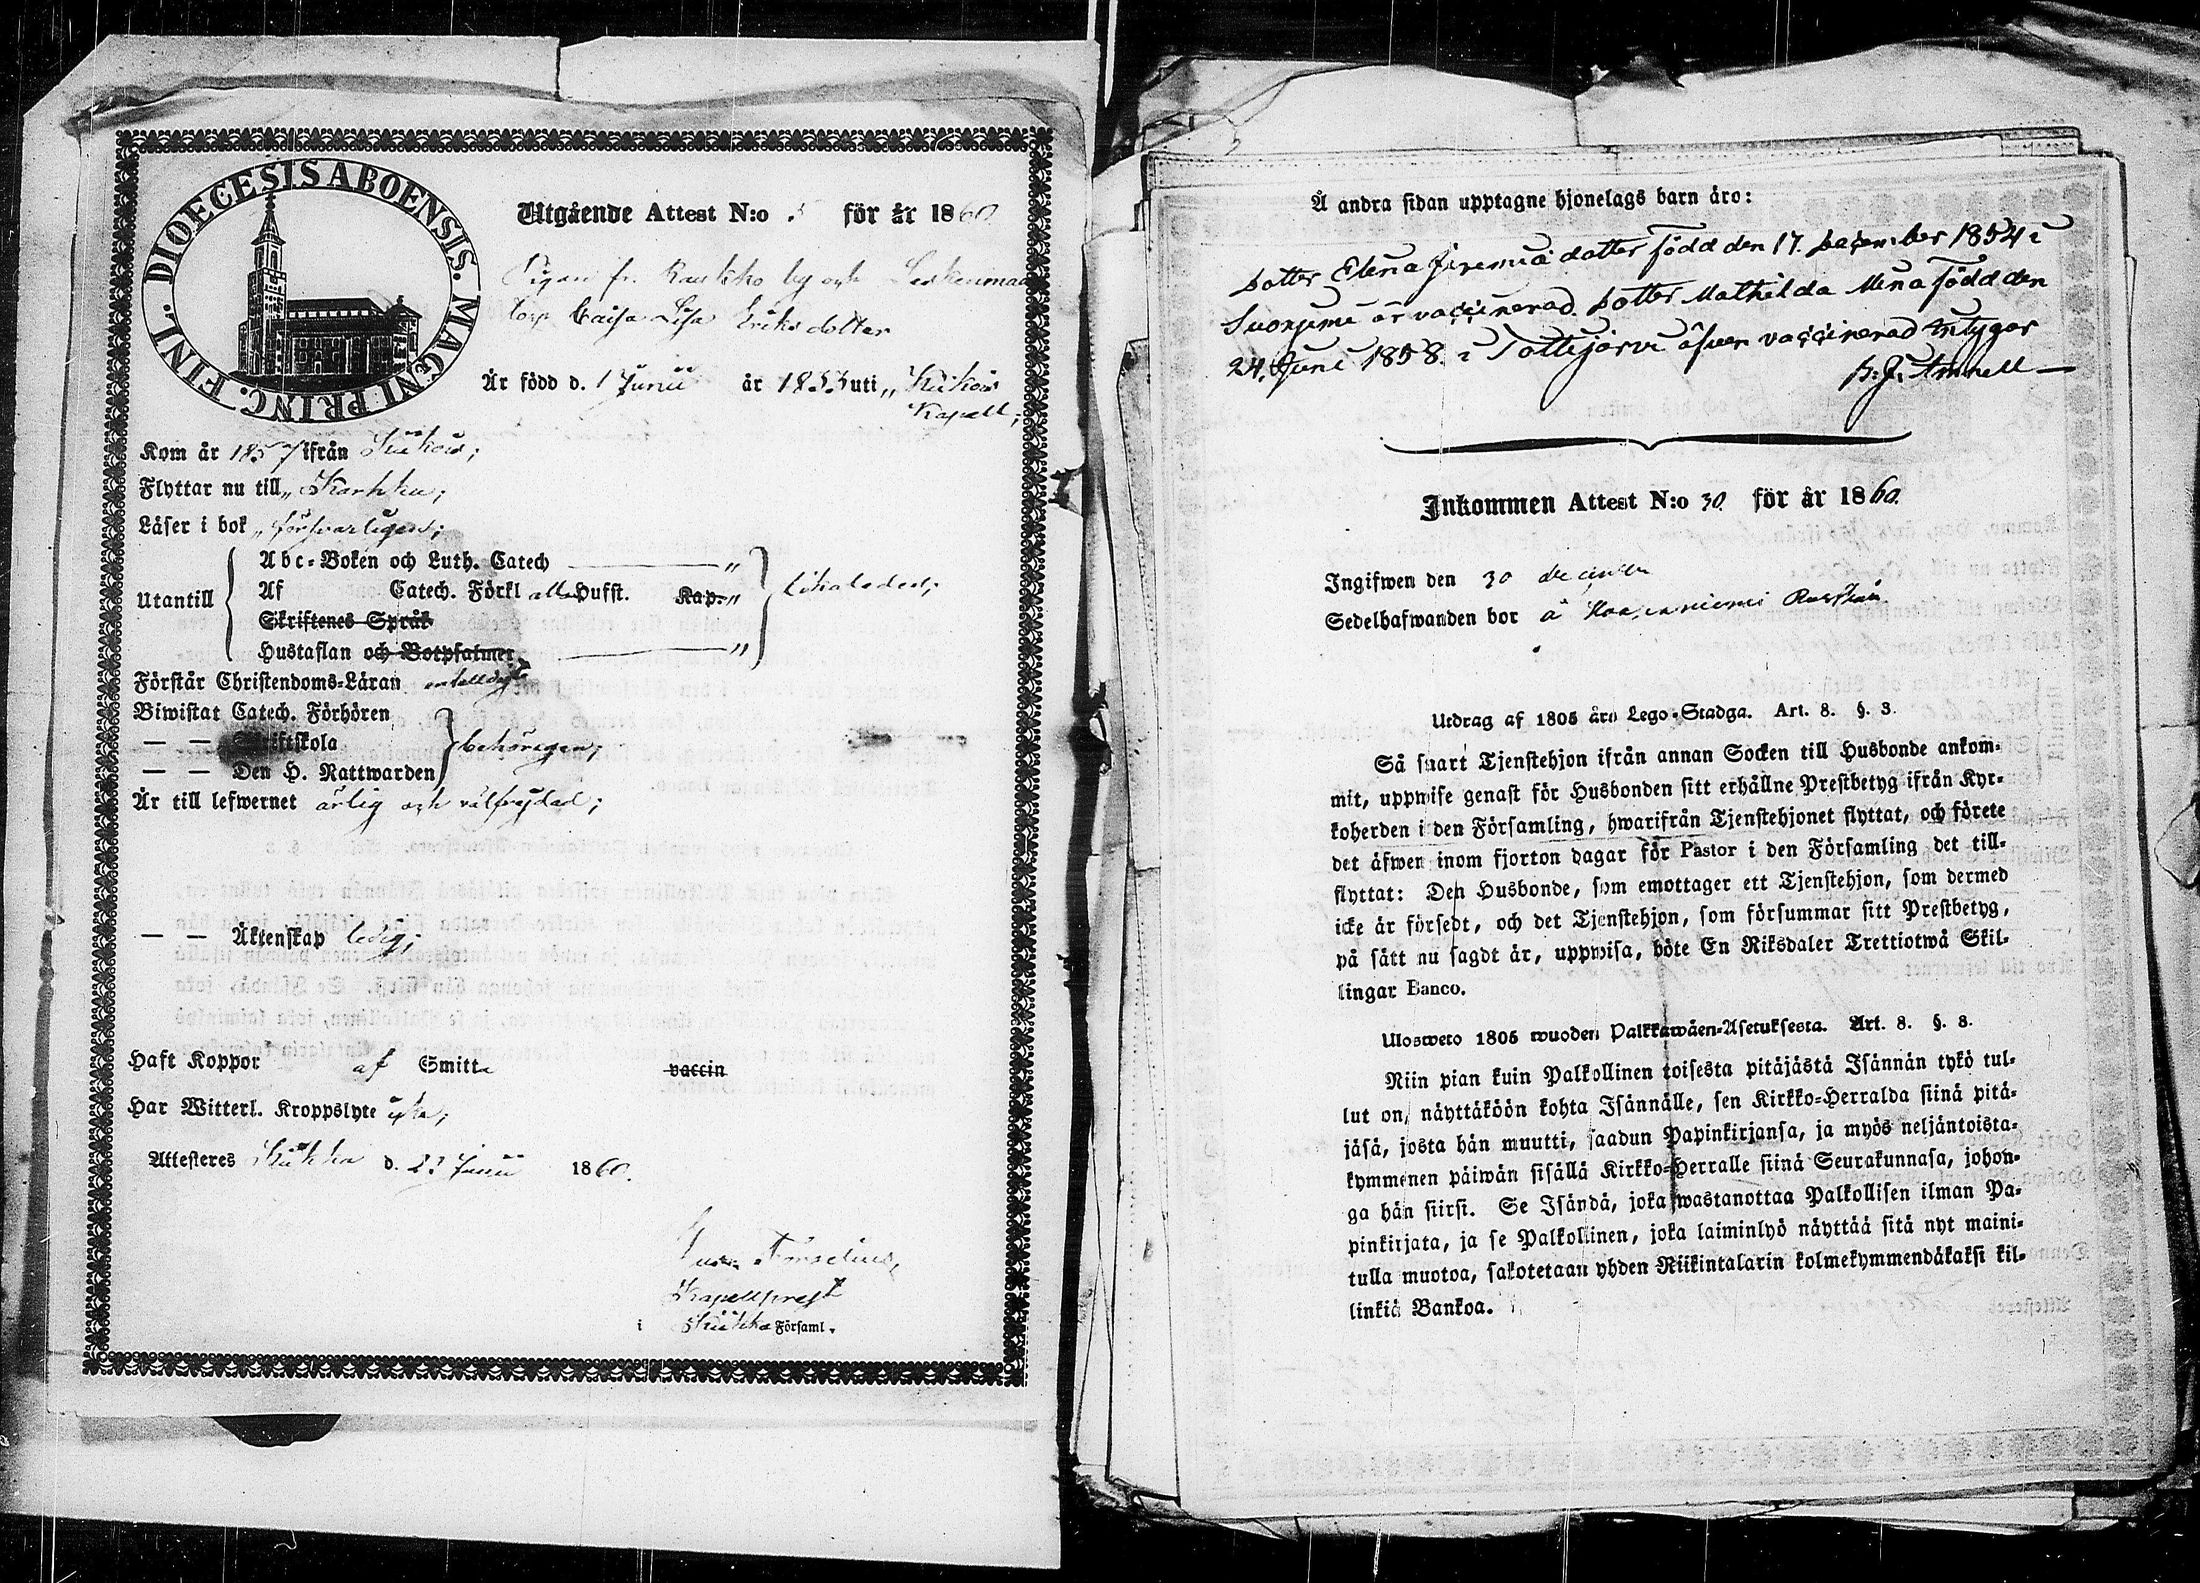 DIOECESIS ABOENSIS. MAGNI PRINC. FINL.
Utgående Attest N:o för år 1860
Pigan fr. by och
torp Caisa Lisa Eriksdotter
Är född d. 1 Junii år 1833 uti
Kapell;
Kom år 1857 ifrån
Flyttar nu till Karkku;
Läser i bok försvarligen;
Utantill
Abc-Boken och Luth. Catech — "
Af Catech. Förkl alla Hufst. Kap. "
Skriftenes Språk
Hustaflan och Botpsalmer — "
likaledes;
Förstår Christendoms-Läran enkelt
Biwistat Catech. Förhören
— — Skriftskola
— — Den H. Nattwarden
behörigen;
Är till lefwernet ärlig och välfrejdad;
— — Äktenskap ledig;
Haft Koppor af Smitta vaccin
Har Witterl. Kroppslyte icke;
Attesteres d. 23 Junii 1860.
Forselius,
Kapellprest
i Församl.
Å andra sidan upptagne hjonelags barn äro:
Dotter Elena Jeremiä dotter född den 17. December 1854 i
Suonjemi är vaccinerad. Dotter Mathilda Mina född den
24. Juni 1858. i Tottijärvi äfven vaccinerad intygar
Amnell
Inkommen Attest N:o 30 för år 1860.
Ingifwen den 30 december
Sedelhafwanden bor å
Utdrag af 1805 års Lego-Stadga. Art. 8. §. 3.
Så snart Tjenstehjon ifrån annan Socken till Husbonde ankom-
mit, uppwise genast för Husbonden sitt erhållne Prestbetyg ifrån Kyr-
koherden i den Församling, hwarifrån Tjenstehjonet flyttat, och förete
det äfwen inom fjorton dagar för Pastor i den Församling det till-
flyttat: Den Husbonde, som emottager ett Tjenstehjon, som dermed
icke är försedt, och det Tjenstehjon, som försummar sitt Prestbetyg,
på sätt nu sagdt är, uppwisa, böte En Riksdaler Trettiotwå Skil-
lingar Banco.
Ulosweto 1805 wuoden Palkkawäen-Asetuksesta. Art. 8. §. 3.
Niin pian kuin Palkollinen toisesta pitäjästä Isännän tykö tul-
lut on, näyttäköön kohta Isännälle, sen Kirkko-Herralda siinä pitä-
jäsä, josta hän muutti, saadun Papinkirjansa, ja myös neljäntoista-
kymmenen päiwän sisällä Kirkko-Herralle siinä Seurakunnasa, johon-
ga hän siirsi. Se Isändä, joka wastanottaa Palkollisen ilman Pa-
pinkirjata, ja se Palkollinen, joka laiminlyö näyttää sitä nyt maini-
tulla muotoa, sakotetaan yhden Riikintalarin kolmekymmendäkaksi kil-
linkiä Bankoa.